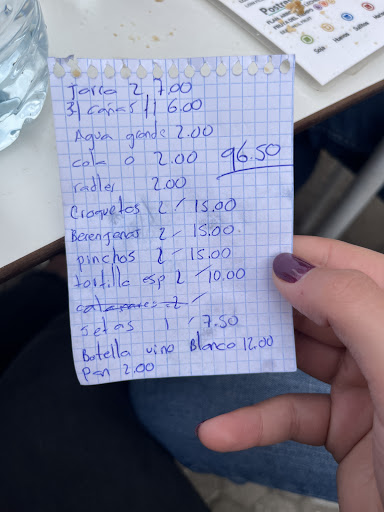 Jarra 2, 7.00
3/ cañas // 6.00
Agua grande 2.00
cola 0 2.00
96.50
radler 2.00
Croquetas 2 / 15.00
Berenjenas 2 / 15.00
pinchos 2 / 15.00
tortilla esp 2 / 10.00
calamares 2 /
setas 1 / 7.50
Botella vino Blanco 12.00
Pan 2.00
Postre